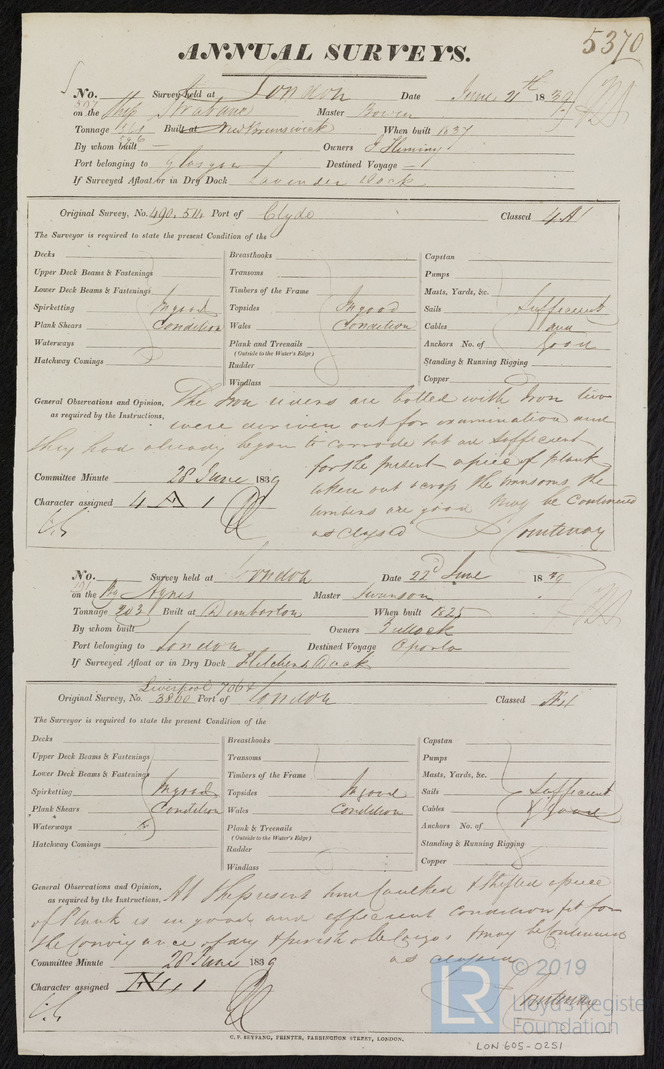 5370
ANNUAL SURVEYS.
No. Survey held at London Date June 21th 1839
on the Ship Strabane Master Bowen
Tonnage Built at New Brunswick When built 1837
By whom built — Owners J Fleming
Port belonging to Glasgow Destined Voyage —
If Surveyed Afloat or in Dry Dock Lavender Dock
Original Survey, No. 490. 514 Port of Clyde Classed 4 A1
The Surveyor is required to state the present Condition of the
Decks Breasthooks Capstan
Upper Deck Beams & Fastenings Transoms Pumps
Lower Deck Beams & Fastenings Timbers of the Frame Masts, Yards, &c.
Spirketting In good Topsides In good Sails Sufficient
Plank Shears Condition Wales Condition Cables and
Waterways Plank and Treenails Anchors No. of Good
(Outside to the Water's Edge)
Hatchway Comings Rudder Standing & Running Rigging
Windlass Copper
General Observations and Opinion, The Iron riders are bolted with Iron two
as required by the Instructions, were driven out for examination and
they had already began to corrode but are sufficient
for the present a piece of plank
Committee Minute 28 June 1839
taken out across the transoms the
timbers are good may be continued
Character assigned 4 A 1
as classed Courtenay
No. Survey held at London Date 22d June 1839
on the Bg Agnes Master Swanson
Tonnage 203 Built at Dumbarton When built 1825
By whom built Owners Tullock
Port belonging to London Destined Voyage Oporto
If Surveyed Afloat or in Dry Dock Fletchers Dock
Liverpool 7064
Original Survey, No. 3860 Port of London Classed Æ1
The Surveyor is required to state the present Condition of the
Decks Breasthooks Capstan
Upper Deck Beams & Fastenings Transoms Pumps
Lower Deck Beams & Fastenings Timbers of the Frame Masts, Yards, &c.
Spirketting In good Topsides In good Sails Sufficient
Plank Shears Condition Wales Condition Cables & good
Waterways Plank & Treenails Anchors No. of
(Outside to the Water's Edge)
Hatchway Comings Rudder Standing & Running Rigging
Windlass Copper
General Observations and Opinion, At the present time Caulked & shifted a piece
as required by the Instructions, of Plank is in good and efficient condition fit for
the Conveyance of dry & perishable Cargos & may be Continued
Committee Minute 28 June 1839 as classed
Character assigned Æ 1 Courtenay
C. F. SEYFANG, PRINTER, FARRINGDON STREET, LONDON.
LON 605-0251
LR © 2019
Lloyd's Register
Foundation